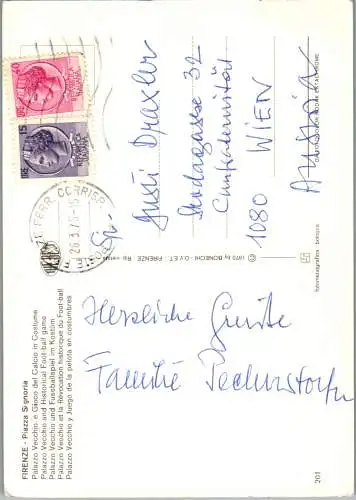 FIRENZE - Piazza Signoria
Palazzo Vecchio e Gioco del Calcio in Costume
Palazzo Vecchio and Historical Foot-ball game
Palazzo Vecchio und Fussballspiel im Kostüm
Palazzo Vecchio et la Révocation historique du Foot-ball
Palazzo Vecchio y Juego de la pelota en costumbres
Herzliche Grüße
Familie
201
© 1973 by BONECHI - O.V.E.T. - FIRENZE - Rip. vietata
FERR. CORRISP
26.3.75-15
LIRE 15
REPUBBLICA ITALIANA
LIRE 40
REPUBBLICA ITALIANA
Gusti Draxler
32
1080 WIEN
Austria
fotometalgrafica - bologna